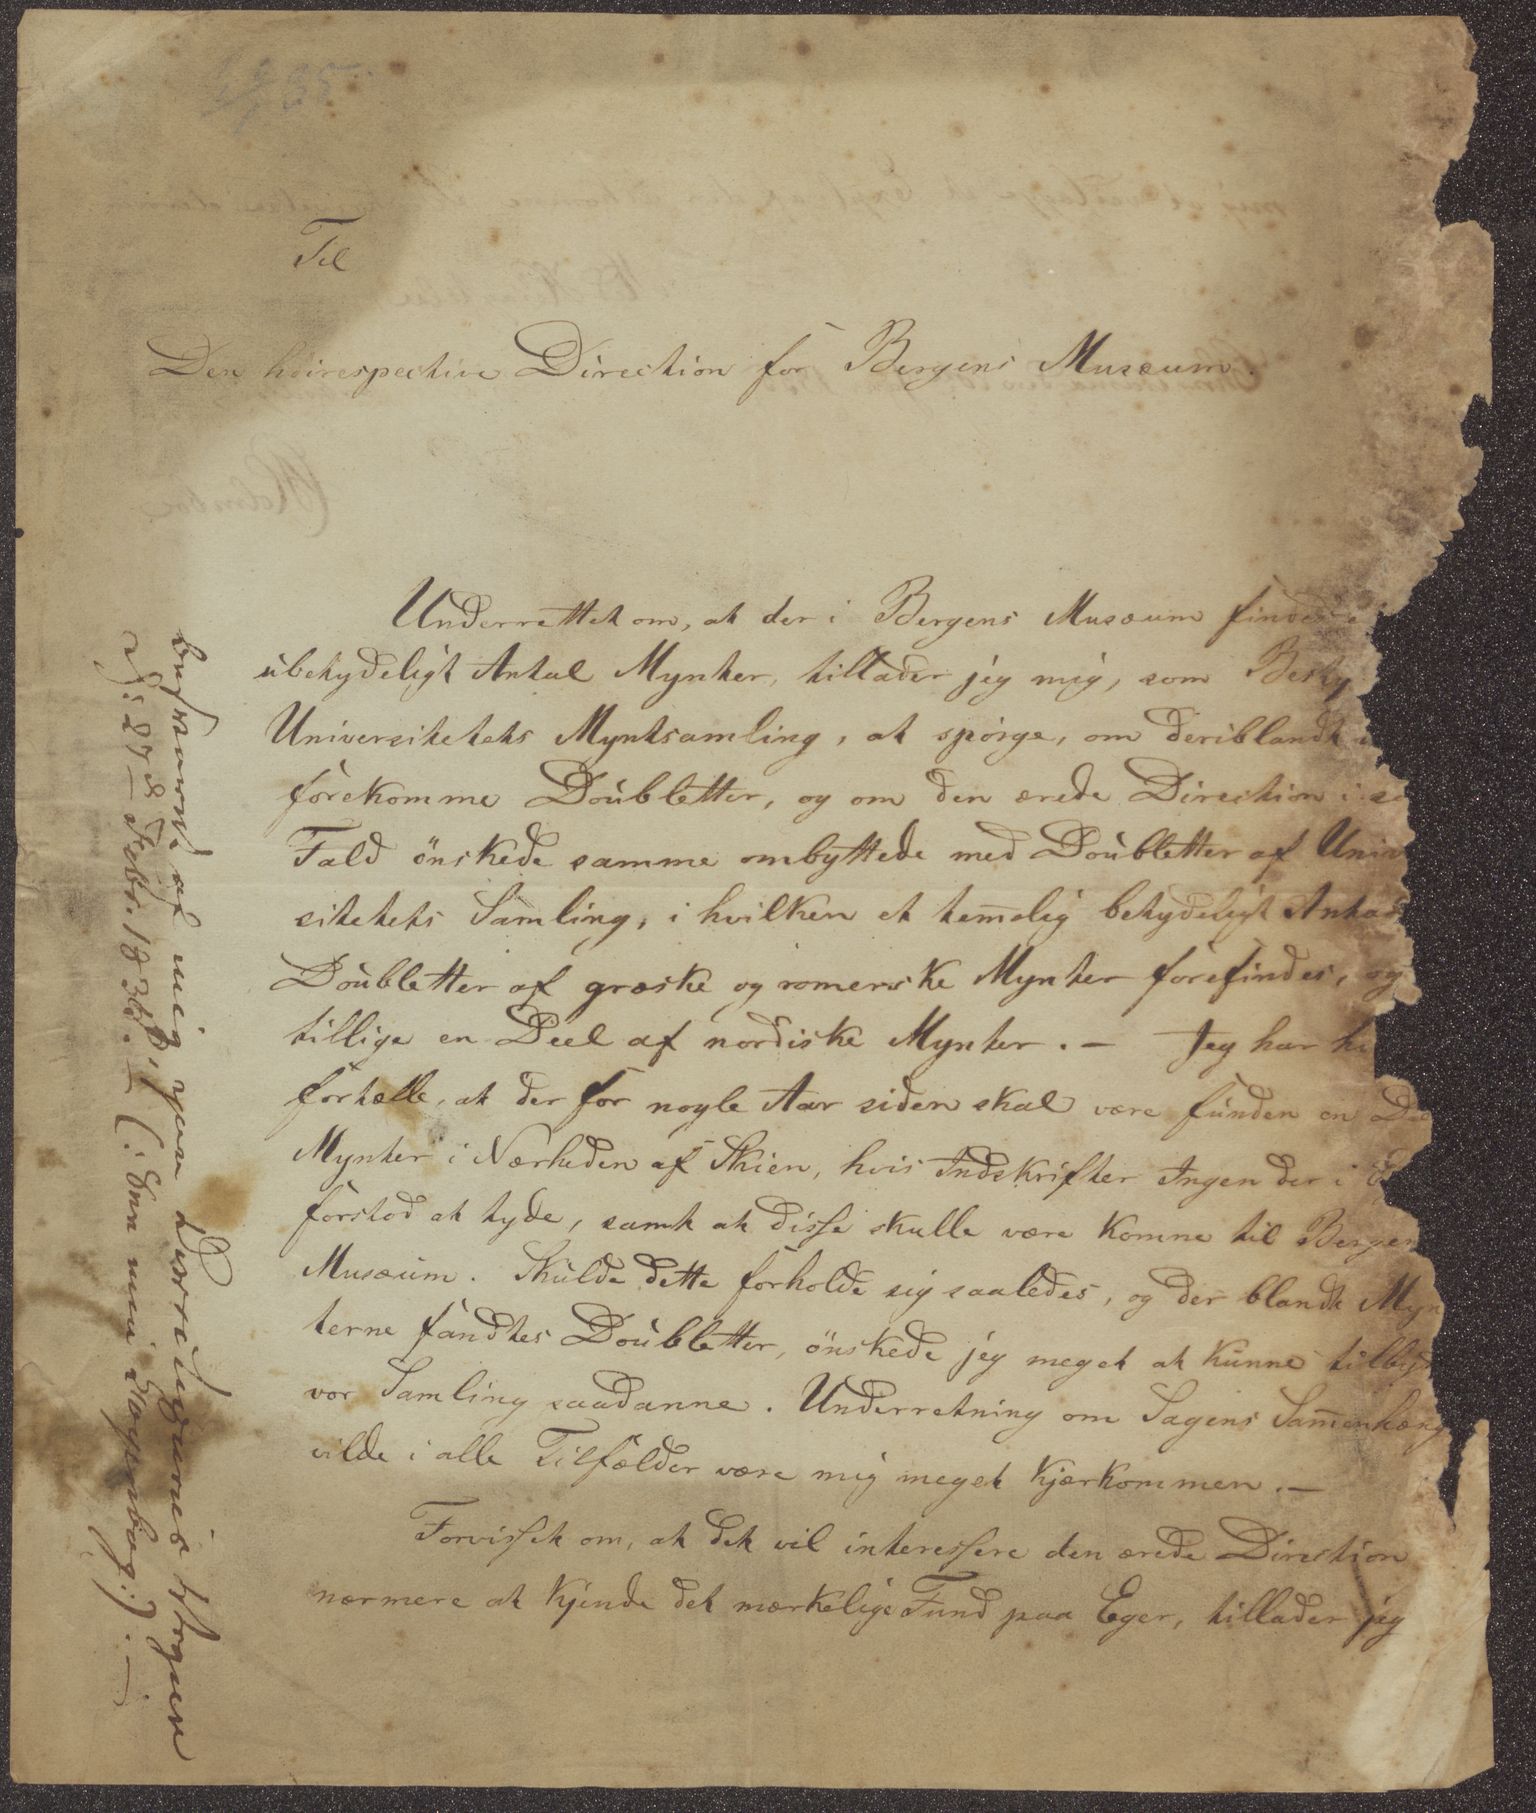 35.
Til
Den høirespective Direction for Bergens Musæum.
Underrettet om, at der i Bergens Musæum findes
ubetydeligt Antal Mynter, tillader jeg mig, som Besty
Universitetets Myntsamling, at spörge, om deriblandt
forekomme Doubletter, og om den ærede Direction i
Fald önskede samme ombyttede med Doubletter af Univ
sitetets Samling, i hvilken et tem̅elig betydeligt Antal
Doubletter af græske og romerske Mynter forefindes, og
tillige en Deel af nordiske Mynter. — Jeg har h
fortælle, at der for nogle Aar siden skal være funden en De
Mynter i Nærheden af Skien, hvis Indskrifter Ingen der i E
forstod at tyde, samt at disse skulle være komne til Bergen
Musæum. Skulde dette forholde sig saaledes, og der blandt Myn
terne fandtes Doubletter, önskede jeg meget at kunne tilby
vor Samling saadanne. Underretning om Sagens Sam̅enhæng
vilde i alle Tilfælder være mig meget kjærkommen. —
Forvisset om, at det vil interessere den ærede Direction
nærmere at kjende det mærkelige Fund paa Eger, tillader jeg
Besvaret af mig paa Directionens Vegne
d: 27de Febr. 1835. — (: See min Copiebog :). —